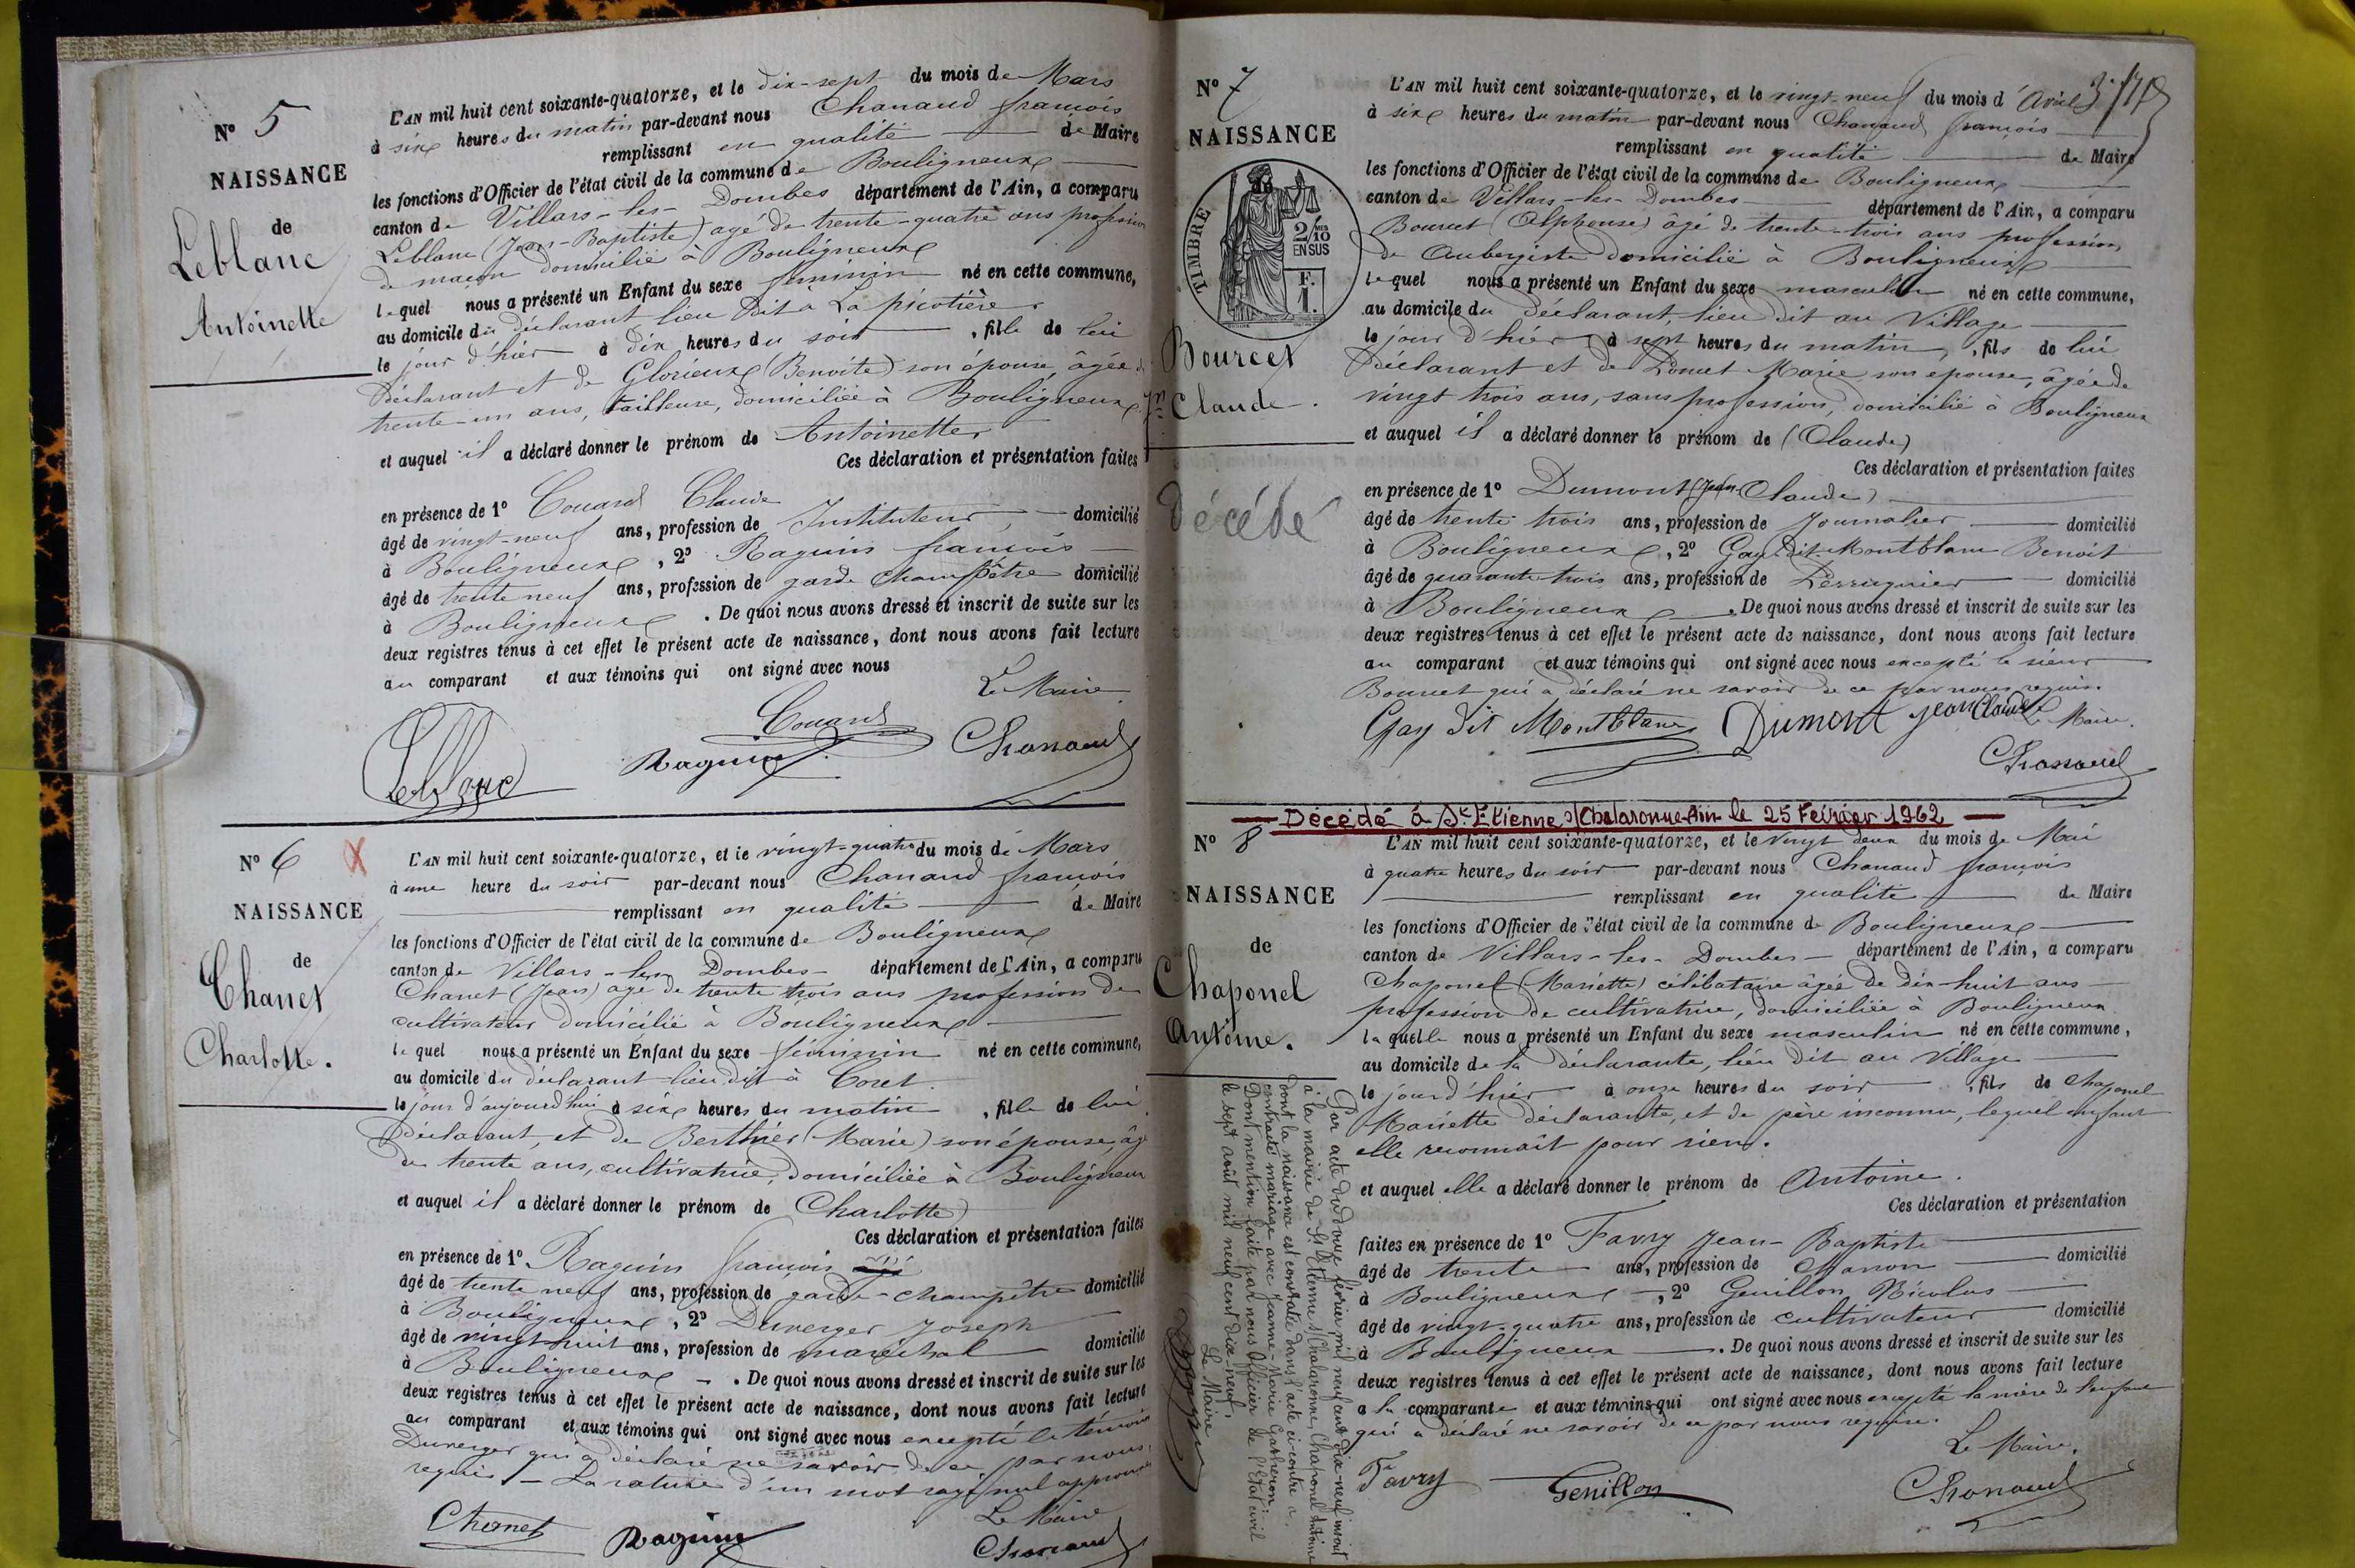 N° 5
NAISSANCE
de
Leblanc
Antoinette
L'AN mil huit cent soixante-quatorze, et le dix-sept du mois de Mars
à six heures du matin par-devant nous Chanaud françois
remplissant en qualité de Maire
les fonctions d'Officier de l'état civil de la commune de Bouligneux
canton de Villars-les-Dombes département de l'Ain, a comparu
Leblanc (Jean-Baptiste) agé de trente-quatre ans profession
de maçon domicilié à Bouligneux
lequel nous a présenté un Enfant du sexe féminin né en cette commune,
au domicile du déclarant, lieu dit à La picotière
le jour d'hier à dix heures du soir, fille de lui
Déclarant et de Glorieux (Benoite) son épouse, âgée de
trente-un ans, tailleuse, domiciliée à Bouligneux
et auquel il a déclaré donner le prénom de Antoinette
Ces déclaration et présentation faites
en présence de 1° Couard Claude
âgé de vingt-neuf ans, profession de Instituteur, domicilié
à Bouligneux, 2° Raguin françois
âgé de trente neuf ans, profession de garde champêtre domicilié
à Bouligneux. De quoi nous avons dressé et inscrit de suite sur les
deux registres tenus à cet effet le présent acte de naissance, dont nous avons fait lecture
au comparant et aux témoins qui ont signé avec nous
Le Maire
Leblanc Couard Raguin Chanaud
N° 6 X
NAISSANCE
de
Chanet
Charlotte.
L'AN mil huit cent soixante-quatorze, et le vingt-quatre du mois de Mars
à une heure du soir par-devant nous Chanaud françois
remplissant en qualité de Maire
les fonctions d'Officier de l'état civil de la commune de Bouligneux
canton de Villars-les-Dombes département de l'Ain, a comparu
Chanet (Jean) agé de trente trois ans profession de
cultivateur domicilié à Bouligneux
lequel nous a présenté un Enfant du sexe féminin né en cette commune,
au domicile du déclarant lieu dit à Coret.
le jour d'aujourd'hui à six heures du matin, fille de lui
Déclarant, et de Berthier (Marie) son épouse, âgée
de trente ans, cultivatrice, domiciliée à Bouligneux
et auquel il a déclaré donner le prénom de Charlotte
Ces déclaration et présentation faites
en présence de 1° Raguin françois
âgé de trente neuf ans, profession de garde-champêtre domicilié
à Bouligneux, 2° Duverger Joseph
âgé de vingt-huit ans, profession de maréchal domicilié
à Bouligneux. De quoi nous avons dressé et inscrit de suite sur les
deux registres tenus à cet effet le présent acte de naissance, dont nous avons fait lecture
au comparant et aux témoins qui ont signé avec nous excepté le témoin
Duverger qui a déclaré ne savoir de ce par nous
requis. — La rature d'un mot rayé nul approuvé
Le Maire
Chanet Raguin Chanaud
N° 7
NAISSANCE
TIMBRE
2/10 EN SUS
F. 1.
Bourcet
Claude.
Décédé
L'AN mil huit cent soixante-quatorze, et le vingt-neuf du mois d'Avril
à six heures du matin par-devant nous Chanaud françois
remplissant en qualité de Maire
les fonctions d'Officier de l'état civil de la commune de Bouligneux
canton de Villars-les-Dombes département de l'Ain, a comparu
Bourcet (Alphonse) âgé de trente-trois ans profession
de Aubergiste domicilié à Bouligneux
lequel nous a présenté un Enfant du sexe masculin né en cette commune,
au domicile du déclarant, lieu dit au Village
le jour d'hier à sept heures du matin, fils de lui
Déclarant et de Marie son épouse, âgée de
vingt trois ans, sans profession, domicilié à Bouligneux
et auquel il a déclaré donner le prénom de (Claude)
Ces déclaration et présentation faites
en présence de 1° Dumont (Jean-Claude)
âgé de trente trois ans, profession de Journalier domicilié
à Bouligneux, 2° Gay-dit-Montblanc Benoit
âgé de quarante trois ans, profession de Perruquier domicilié
à Bouligneux. De quoi nous avons dressé et inscrit de suite sur les
deux registres tenus à cet effet le présent acte de naissance, dont nous avons fait lecture
au comparant et aux témoins qui ont signé avec nous excepté le sieur
Bourcet qui a déclaré ne savoir de ce par nous requis.
Gay dit Montblanc Dumont jean Claude Le Maire.
Chanaud
— Décédé à St Etienne s/Chalaronne-Ain le 25 Février 1962 —
N° 8
NAISSANCE
de
Chaponel
Antoine.
L'AN mil huit cent soixante-quatorze, et le vingt deux du mois de Mai
à quatre heures du soir par-devant nous Chanaud françois
remplissant en qualité de Maire
les fonctions d'Officier de l'état civil de la commune de Bouligneux
canton de Villars-les-Dombes département de l'Ain, a comparu
Chaponel (Mariette) célibataire âgée de dix-huit ans
profession de cultivatrice, domiciliée à Bouligneux
laquelle nous a présenté un Enfant du sexe masculin né en cette commune,
au domicile de la déclarante, lieu dit au Village
le jour d'hier à onze heures du soir, fils de Chaponel
Mariette déclarante, et de père inconnu, lequel enfant
elle reconnaît pour sien.
et auquel elle a déclaré donner le prénom de Antoine.
Ces déclaration et présentation
faites en présence de 1° Favry Jean-Baptiste
âgé de trente ans, profession de domicilié
à Bouligneux, 2° Genillon Nicolas
âgé de vingt-quatre ans, profession de cultivateur domicilié
à Bouligneux. De quoi nous avons dressé et inscrit de suite sur les
deux registres tenus à cet effet le présent acte de naissance, dont nous avons fait lecture
a la comparante et aux témoins qui ont signé avec nous excepté la mère de l'enfant
qui a déclaré ne savoir de ce par nous requise.
Le Maire.
Favry Genillon Chanaud
Par acte du douze février mil neuf cent dix-neuf inscrit
à la mairie de St Etienne s/Chalaronne, Chaponel Antoine
dont la naissance est constatée dans l'acte ci-contre a
contracté mariage avec Jeanne Marie Gatheron.
Dont mention faite par nous Officier de l'Etat civil
le sept août mil neuf cent dix-neuf.
Le Maire